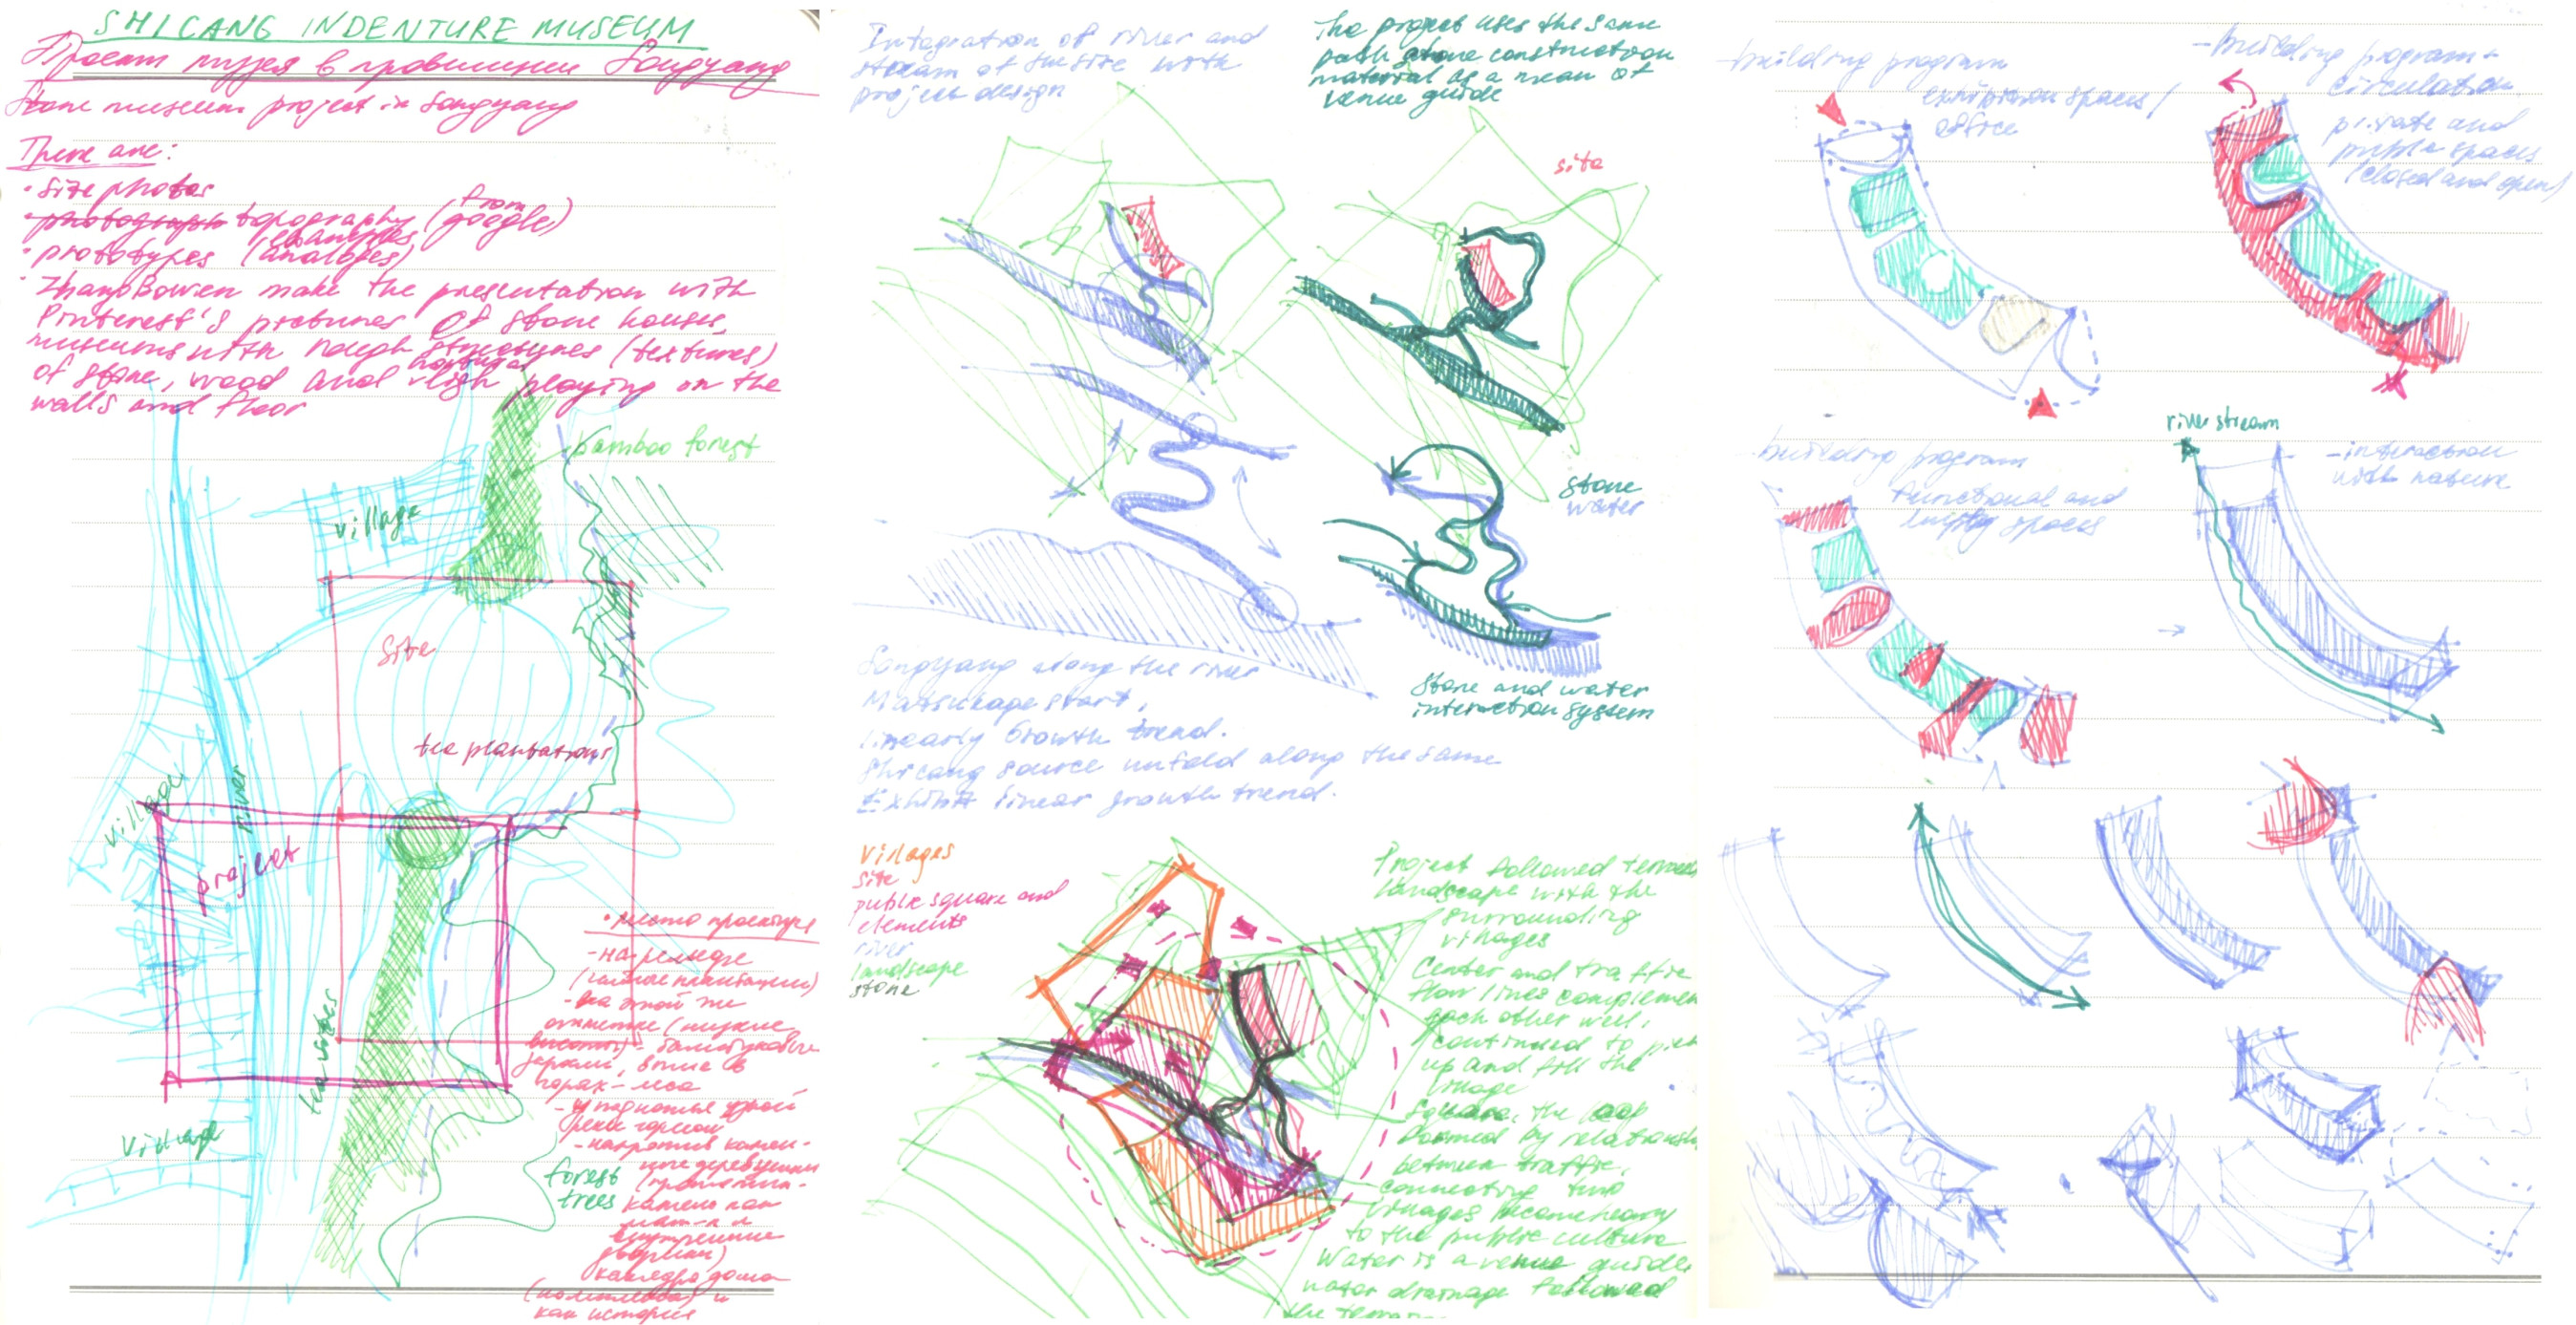 SHICANG INDENTURE MUSEUM
Проект музея в провинции Songyang
Stone museum project in Songyang
There are:
• Site photos
• photograph topography (from google)
• prototypes (examples, analoges)
• ZhangBowen make the presentation with
Pinterest's pictures of stone houses,
museums with rough structures (textures)
of stone, wood and playing on the
walls and floor
bamboo forest
village
Site
tea plantations
village
river
project
village
forest
trees
• место проектир
- на рельефе
(чайные плантации)
- на этой же
отметке (низкие
высоты) - бамбуковые
, выше в
горах - леса
- у подножья узкой
реки горной
- напротив камен-
ные деревушки
камень как
мат-л и
внутренние
дворики)
каждого дома
и
как история
Integration of river and
stream at the site with
project design
The project uses the same
path stone construction
material as a mean of
venue guide
site
stone
water
Stone and water
interaction system
Songyang along the river
start,
linearly Growth trend.
Shicang source unfold along the same
Exhibit linear growth trend.
villages
site
public square and
elements
river
landscape
stone
Project followed
landscape with the
surrounding
villages
Center and traffic
flow lines
each other well,
continued to
up and fill the
village
Square, the loop
formed by
between traffic,
connecting two
villages
to the public culture
Water is a venue guide
water drainage followed
the
- building program
exhibition spaces /
office
- building program +
circulation,
private and
public spaces
(closed and open)
- building program
functional and
empty spaces
river stream
- interaction
with nature